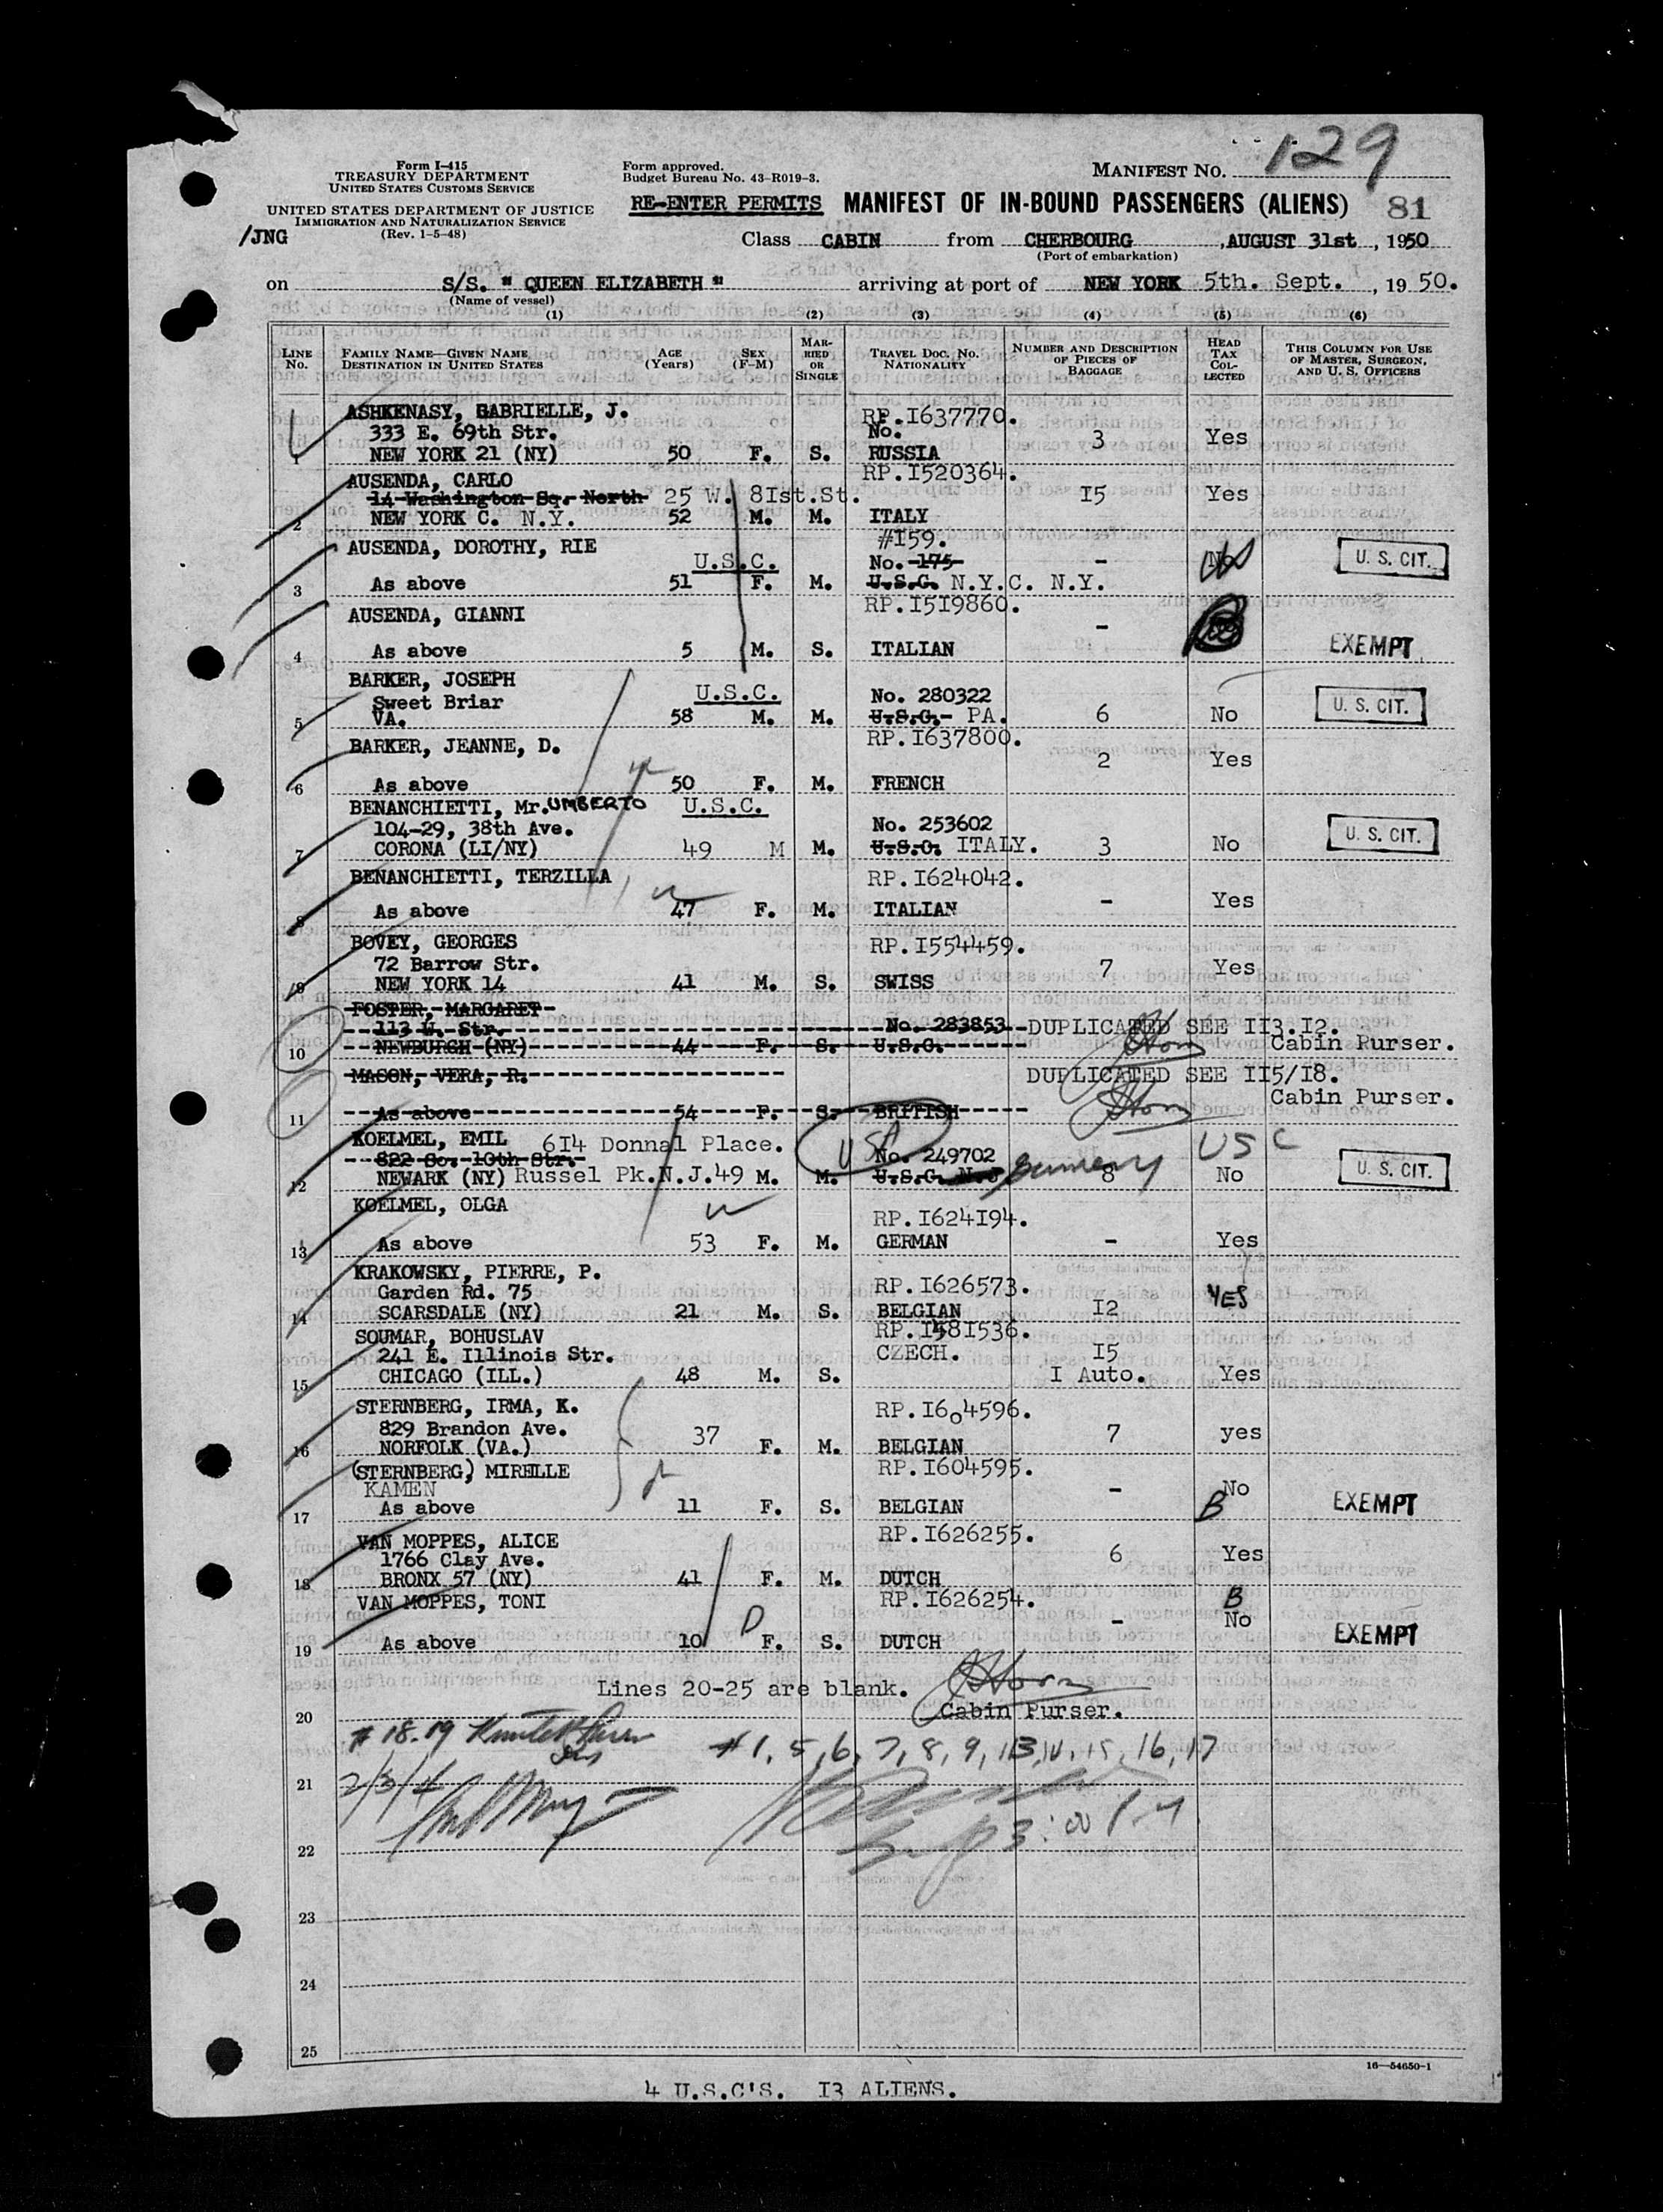 129
Form I-415
TREASURY DEPARTMENT
UNITED STATES CUSTOMS SERVICE
UNITED STATES DEPARTMENT OF JUSTICE
IMMIGRATION AND NATURALIZATION SERVICE
(Rev. 1-5-48)
/JNG
Form approved.
Budget Bureau No. 43-R019-3.
MANIFEST NO.
RE-ENTER PERMITS MANIFEST OF IN-BOUND PASSENGERS (ALIENS) 81
Class CABIN from CHERBOURG , AUGUST 31st , 1950
(Port of embarkation)
on S/S. " QUEEN ELIZABETH " arriving at port of NEW YORK 5th. Sept. , 19 50.
(Name of vessel)
(1) (2) (3) (4) (5) (6)
LINE No. FAMILY NAME—GIVEN NAME DESTINATION IN UNITED STATES AGE (Years) SEX (F-M) MARRIED OR SINGLE TRAVEL DOC. NO. NATIONALITY NUMBER AND DESCRIPTION OF PIECES OF BAGGAGE HEAD TAX COLLECTED THIS COLUMN FOR USE OF MASTER, SURGEON, AND U. S. OFFICERS
ASHKENASY, GABRIELLE, J. RP.I637770.
333 E. 69th Str. No. 3 Yes
1 NEW YORK 21 (NY) 50 F. S. RUSSIA
AUSENDA, CARLO RP.I520364.
14 Washington Sq. North 25 W. 8Ist.St. I5 Yes
2 NEW YORK C. N.Y. 52 M. M. ITALY
AUSENDA, DOROTHY, RIE #I59.
U.S.C. No. 175 - No U. S. CIT.
3 As above 51 F. M. U.S.C. N.Y.C. N.Y.
AUSENDA, GIANNI RP.I5I9860.
-
4 As above 5 M. S. ITALIAN EXEMPT
BARKER, JOSEPH
Sweet Briar U.S.C. No. 280322 U. S. CIT.
5 VA. 58 M. M. U.S.C.- PA. 6 No
BARKER, JEANNE, D. RP.I637800.
2 Yes
6 As above 50 F. M. FRENCH
BENANCHIETTI, Mr. UMBERTO U.S.C.
104-29, 38th Ave. No. 253602 U. S. CIT.
7 CORONA (LI/NY) 49 M M. U.S.C. ITALY. 3 No
BENANCHIETTI, TERZILLA RP.I624042.
- Yes
8 As above 47 F. M. ITALIAN
BOVEY, GEORGES RP.I554459.
72 Barrow Str. 7 Yes
9 NEW YORK 14 41 M. S. SWISS
FOSTER, MARGARET
113 W. Str. No. 283853 DUPLICATED SEE II3.I2.
10 NEWBURGH (NY) 44 F. S. U.S.C. Cabin Purser.
MASON, VERA, R. DUPLICATED SEE II5/I8.
Cabin Purser.
11 As above 54 F. S. BRITISH
KOELMEL, EMIL 6I4 Donnal Place. USC USC
822 So. 10th Str. No. 249702 Germany
12 NEWARK (NY) Russel Pk.N.J. 49 M. M. U.S.C. N.J 8 No U. S. CIT.
KOELMEL, OLGA RP.I624I94.
13 As above 53 F. M. GERMAN - Yes
KRAKOWSKY, PIERRE, P. RP.I626573.
Garden Rd. 75 YES
14 SCARSDALE (NY) 21 M. S. BELGIAN I2
SOUMAR, BOHUSLAV RP.I58I536.
241 E. Illinois Str. CZECH. I5
15 CHICAGO (ILL.) 48 M. S. I Auto. Yes
STERNBERG, IRMA, K. RP.I604596.
829 Brandon Ave. 37 7 yes
16 NORFOLK (VA.) F. M. BELGIAN
(STERNBERG) MIREILLE RP.I604595.
KAMEN - No
17 As above 11 F. S. BELGIAN B EXEMPT
VAN MOPPES, ALICE RP.I626255.
1766 Clay Ave. 6 Yes
18 BRONX 57 (NY) 41 F. M. DUTCH
VAN MOPPES, TONI RP.I626254. B
- No
19 As above 10 F. S. DUTCH EXEMPT
Lines 20-25 are blank.
20 Cabin Purser.
# 18.19
# 1, 5, 6, 7, 8, 9, 13, 14, 15, 16, 17
21 2/3/4
3:00 P.M.
22
23
24
25
16—54650-1
4 U.S.C'S. I3 ALIENS.